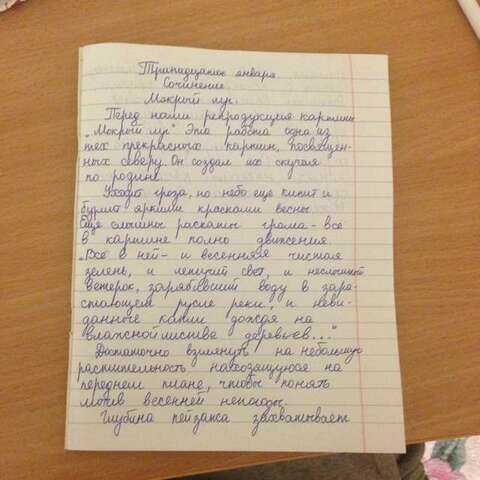 Тринадцатое января
Сочинение.
Мокрый луг.
Перед нами репродукция картины
"Мокрый луг" Эта работа одна из
тех прекрасных картин, посвящен-
ных северу. Он создал их скучая
по родине
Уходит гроза, но небо еще кипит и
бурлит яркими красками весны
Еще слышны раскаты грома - все
в картине полно движения.
"Всё в ней - и весенняя чистая
зелень, и летучий свет, и неслышный
ветерок, зарябивший воду в зара-
стающем русле реки, и неви-
данные капли дождя на
влажной листве деревьев..."
Достаточно взглянуть на небольшую
растительность находящуюся на
переднем плане, чтобы понять
мотив весенней непогоды.
Глубина пейзажа захватывает